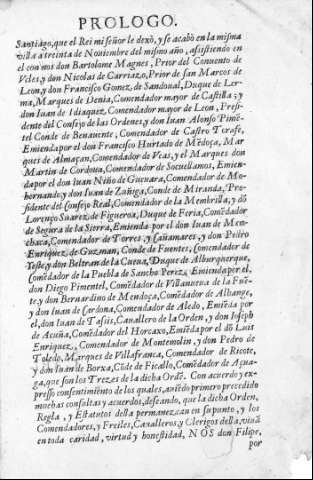 PROLOGO.
Santiago, que el Rei mi señor le dexò, y se acabò en la misma
villa a treinta de Nouiembre del mismo año, asistiendo en
el con vos don Bartolome Magnes, Prior del Conuento de
Vcles, y don Nicolas de Carriazo, Prior de san Marcos de
Leon, y don Francisco Gomez, de Sandoual, Duque de Ler-
ma, Marques de Denia, Comendador mayor de Castilla; y
don Iuan de Idiaquez, Comendador mayor de Leon, Presi-
dente del Consejo de las Ordenes, y don Iuan Alonso Pimē-
tel Conde de Benauente, Comendador de Castro Torafe,
Emienda por el don Francisco Hurtado de Mēdoça, Mar
ques de Almaçan, Comendador de Veas, y el Marques don
Martin de Cordoua, Comendador de Socuellamos, Emien-
da por el don Iuan Niño de Gueuara, Comendador de Mo-
hernando, y don Iuan de Zuñiga, Conde de Miranda, Pre-
sidente del Cōsejo Real, Comendador de la Membrilla, y dō
Lorenço Suarez de Figueroa, Duque de Feria, Comēdador
de Segura de la Sierra, Emienda por el don Iuan de Men-
chaca, Comendador de Torres, y Cañamares, y don Pedro
Enriquez, de Guzman, Conde de Fuentes, Comendador de
Yeste, y don Beltran de la Cueua, Duque de Alburquerque,
Comēdador de la Puebla de Sancho Perez, Emienda por el,
don Diego Pimentel, Comēdador de Villanueua de la Fuē-
te, y don Bernardino de Mendoça, Comēdador de Alhange,
y don Iuan de Cardona, Comendador de Aledo, Emiēda por
el, don Iuan de Tassis, Cauallero de la Orden, y don Ioseph
de Acuña, Comēdador del Horcaxo, Emiēda por el dō Luis
Enriquez, Comendador de Montemolin, y don Pedro de
Toledo, Marques de Villafranca, Comendador de Ricote,
y don Iuan de Borxa, Cōde de Ficallo, Comēdador de Azua-
ga, que son los Trezes de la dicha Ordē. Con acuerdo y ex-
presso consentimiēto de los quales, auiēdo primero precedido
muchas consultas y acuerdos, deseando, que la dicha Orden,
Regla, y Estatutos della permanezcan en su punto, y los
Comendadores, y Freiles, Caualleros, y Clerigos della, viuā
en toda caridad, virtud y honestidad, NOS don Filipe,
por